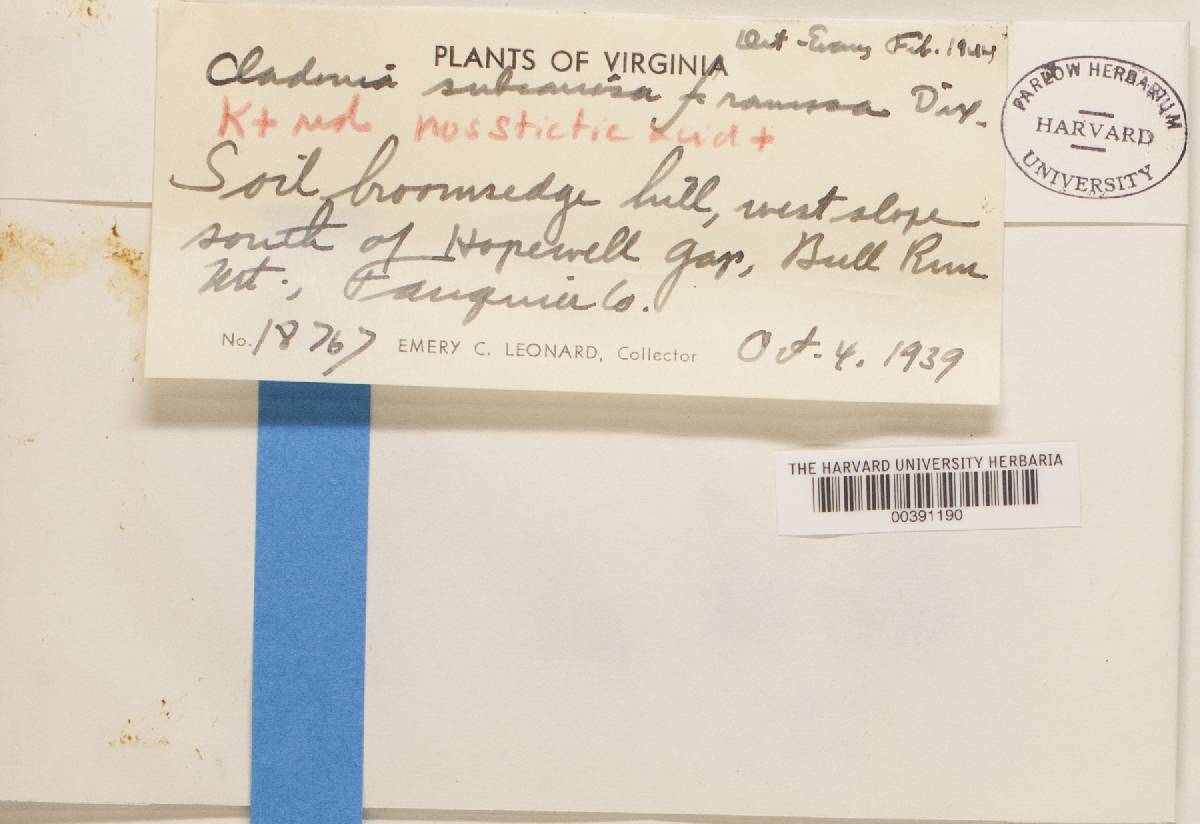 Det - Evans Feb. 1944
PLANTS OF VIRGINIA
Cladonia subcariosa f. ramosa Dix.
K+ red nosstictic acid+
Soil, broomsedge hill, west slope
south of Hopewell Gap, Bull Run
Mt., Fauquier Co.
No. 18767 EMERY C. LEONARD, Collector Oct. 4, 1939
FARLOW HERBARIUM
HARVARD
UNIVERSITY
THE HARVARD UNIVERSITY HERBARIA
00391190